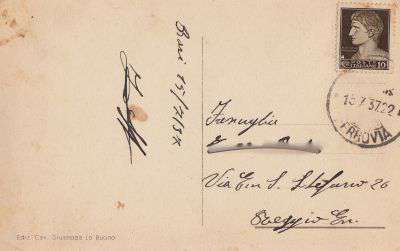 Bari 15/7/37
10
15 7 37 22
FERROVIA
Famiglia
Via Em S. Stefano 26
Reggio Em.
Edit. Cav. Giuseppe Lo Buono